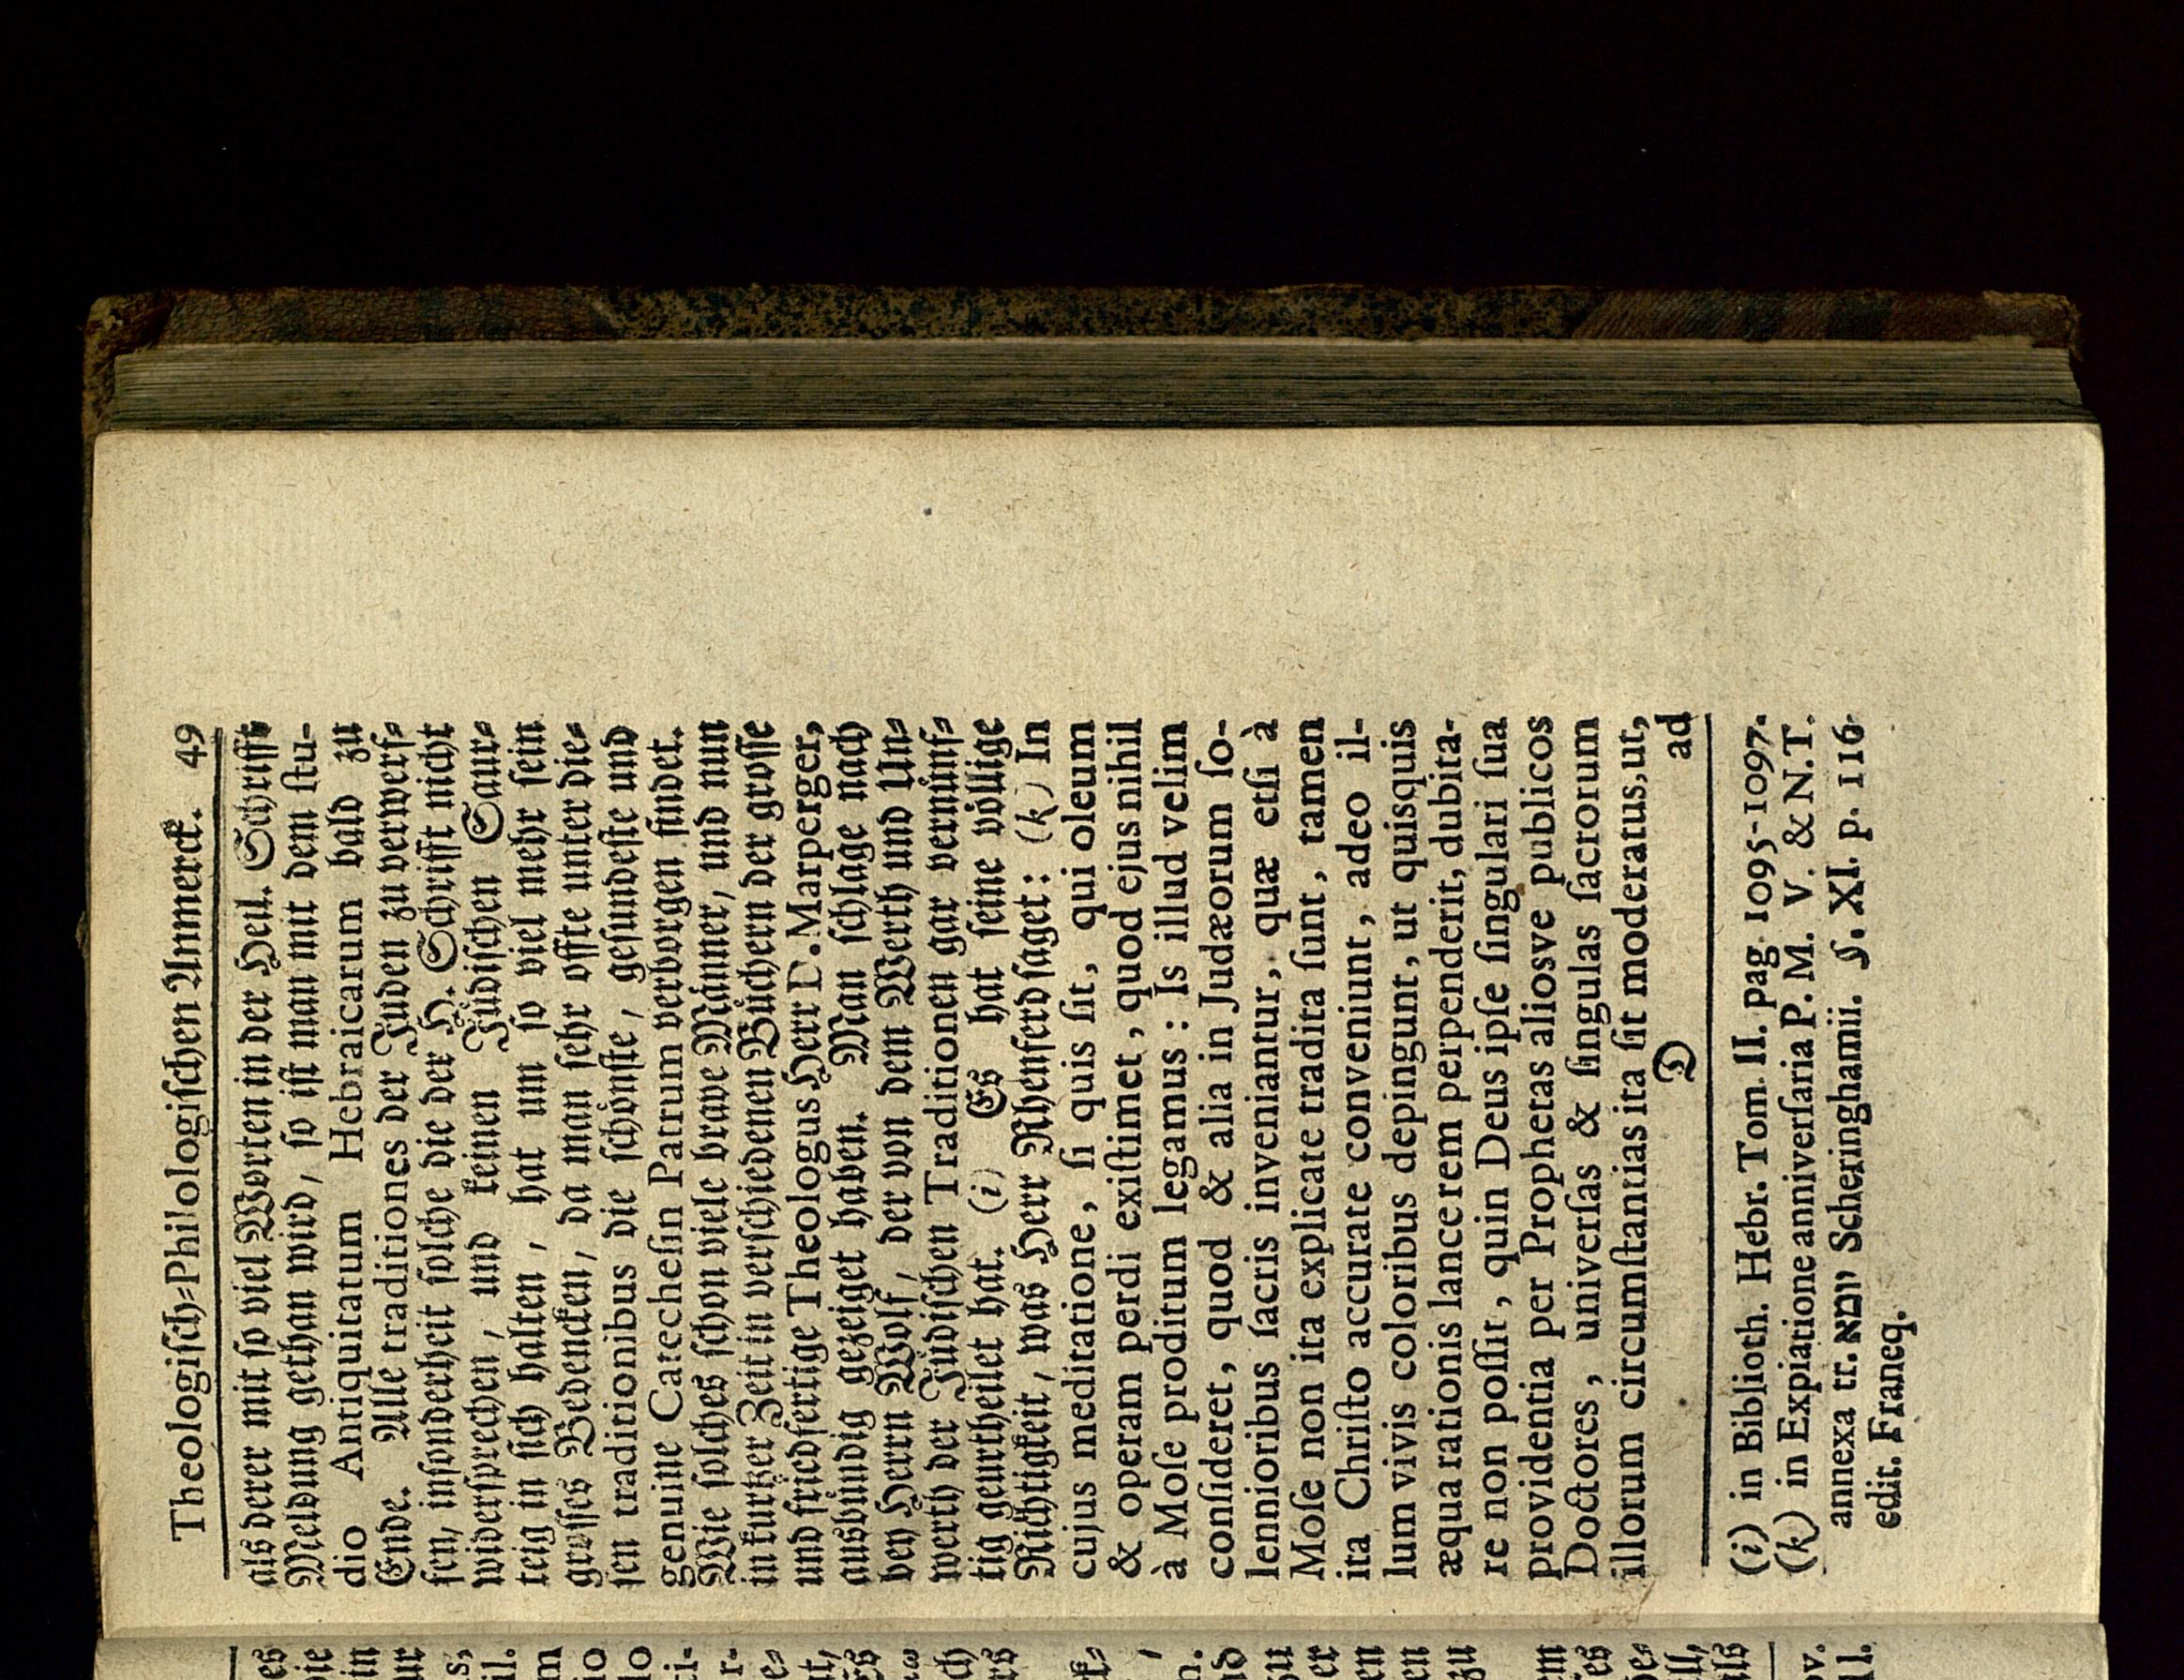 Theologiſch-Philologiſchen Anmerck. 49
als derer mit ſo viel Worten in der Heil. Schrifft
Meldung gethan wird, ſo iſt man mit dem ſtu-
dio Antiquitatum Hebraicarum bald zu
Ende. Alle traditiones der Juden zu verwerf-
fen, inſonderheit ſolche die der H. Schrifft nicht
widerſprechen, und keinen Jüdiſchen Saur-
teig in ſich halten, hat um ſo viel mehr ſein
groſſes Bedencken, da man ſehr offte unter die-
ſen traditionibus die ſchönſte, geſundeſte und
genuine Catecheſin Patrum verborgen findet.
Wie ſolches ſchon viele brave Männer, und nun
in kurtzer Zeit in verſchiedenen Büchern der groſſe
und friedfertige Theologus Herr D. Marperger,
ausbündig gezeiget haben. Man ſchlage nach
den Herrn Wolf, der von dem Werth und Un-
werth der Jüdiſchen Traditionen gar vernünf-
tig geurtheilet hat. (i) Es hat ſeine völlige
Richtigkeit, was Herr Rhenferd ſaget: (k) In
cujus meditatione, ſi quis ſit, qui oleum
& operam perdi exiſtimet, quod ejus nihil
à Moſe proditum legamus: Is illud velim
conſideret, quod & alia in Judæorum ſo-
lennioribus ſacris inveniantur, quæ etſi à
Moſe non ita explicate tradita ſunt, tamen
ita Chriſto accurate conveniunt, adeo il-
lum vivis coloribus depingunt, ut quisquis
æqua rationis lance rem perpenderit, dubita-
re non poſſit, quin Deus ipſe ſingulari ſua
providentia per Prophetas aliosve publicos
Doctores, univerſas & ſingulas ſacrorum
illorum circumſtantias ita ſit moderatus, ut,
D ad
(i) in Biblioth. Hebr. Tom. II. pag. 1095-1097.
(k) in Expiatione anniverſaria P. M. V. & N. T.
annexa tr. יומא Scheringhamii. §. XI. p. 116.
edit. Franeq.